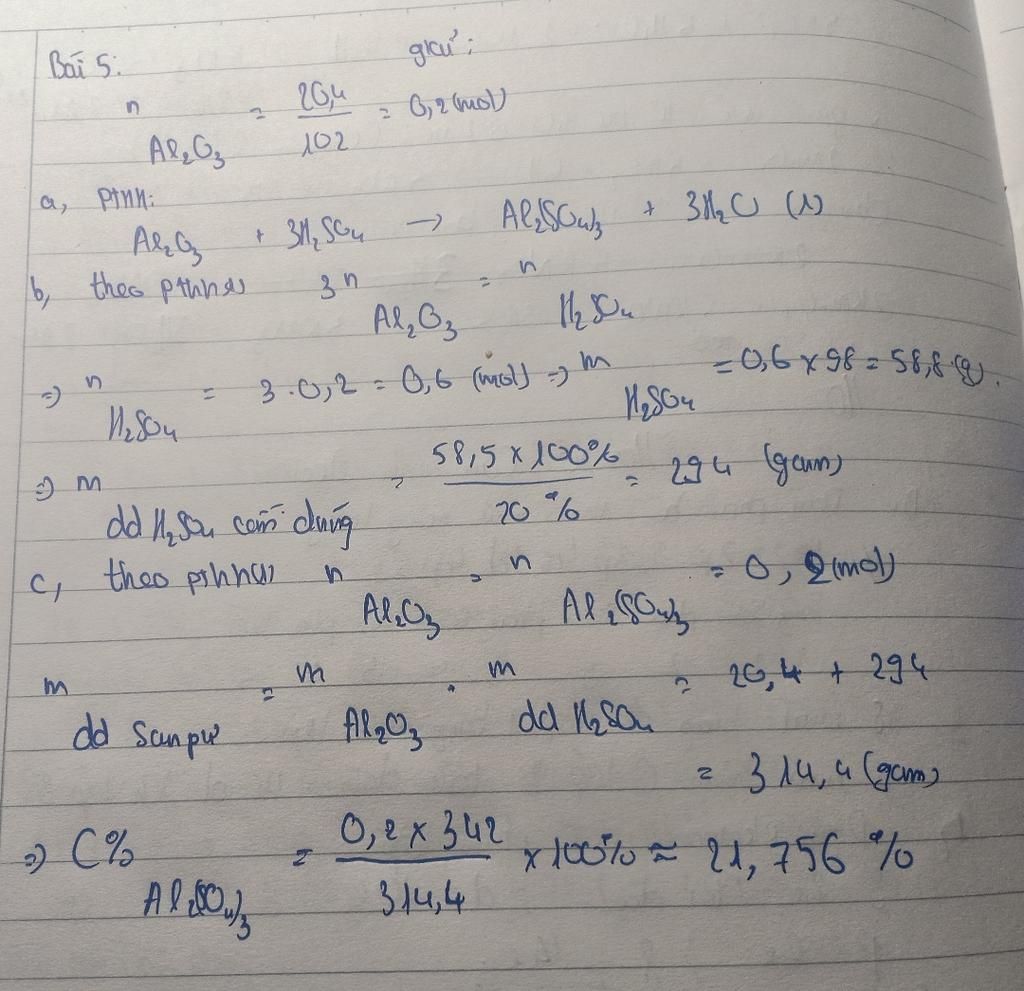 Bài 5: giải:
n Al₂O₃ = 20,4/102 = 0,2 (mol)
a, PTHH:
Al₂O₃ + 3H₂SO₄ → Al₂(SO₄)₃ + 3H₂O (1)
b, theo pthh(1) 3n Al₂O₃ = n H₂SO₄
=> n H₂SO₄ = 3.0,2 = 0,6 (mol) => m H₂SO₄ = 0,6 x 98 = 58,8 (g).
=> m dd H₂SO₄ cần dùng = 58,5 x 100%/20% = 294 (gam)
c, theo pthh(1) n Al₂O₃ = n Al₂(SO₄)₃ = 0,2 (mol)
m dd sau pư = m Al₂O₃ + m dd H₂SO₄ = 20,4 + 294
= 314,4 (gam)
=> C% Al₂(SO₄)₃ = 0,2 x 342/314,4 x 100% ≈ 21,756 %